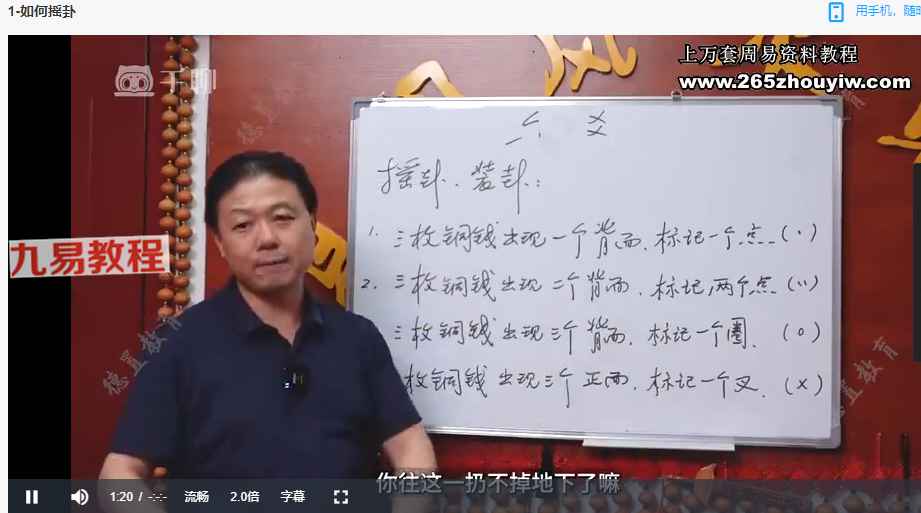 1-如何摇卦
用手机，随时
上万套周易资料教程
www.265zhouyiw.com
千聊
六 爻
摇卦、装卦：
1. 三枚铜钱出现一个背面、标记一个点（、）
2. 三枚铜钱出现二个背面、标记两个点（、、）
三枚铜钱出现三个背面、标记一个圈、（O）
枚铜钱出现三个正面、标记一个叉、（X）
九易教程
德置教育
德置教育
德置教育
你往这一扔不掉地下了嘛
1:20 / -:-- 流畅 2.0倍 字幕